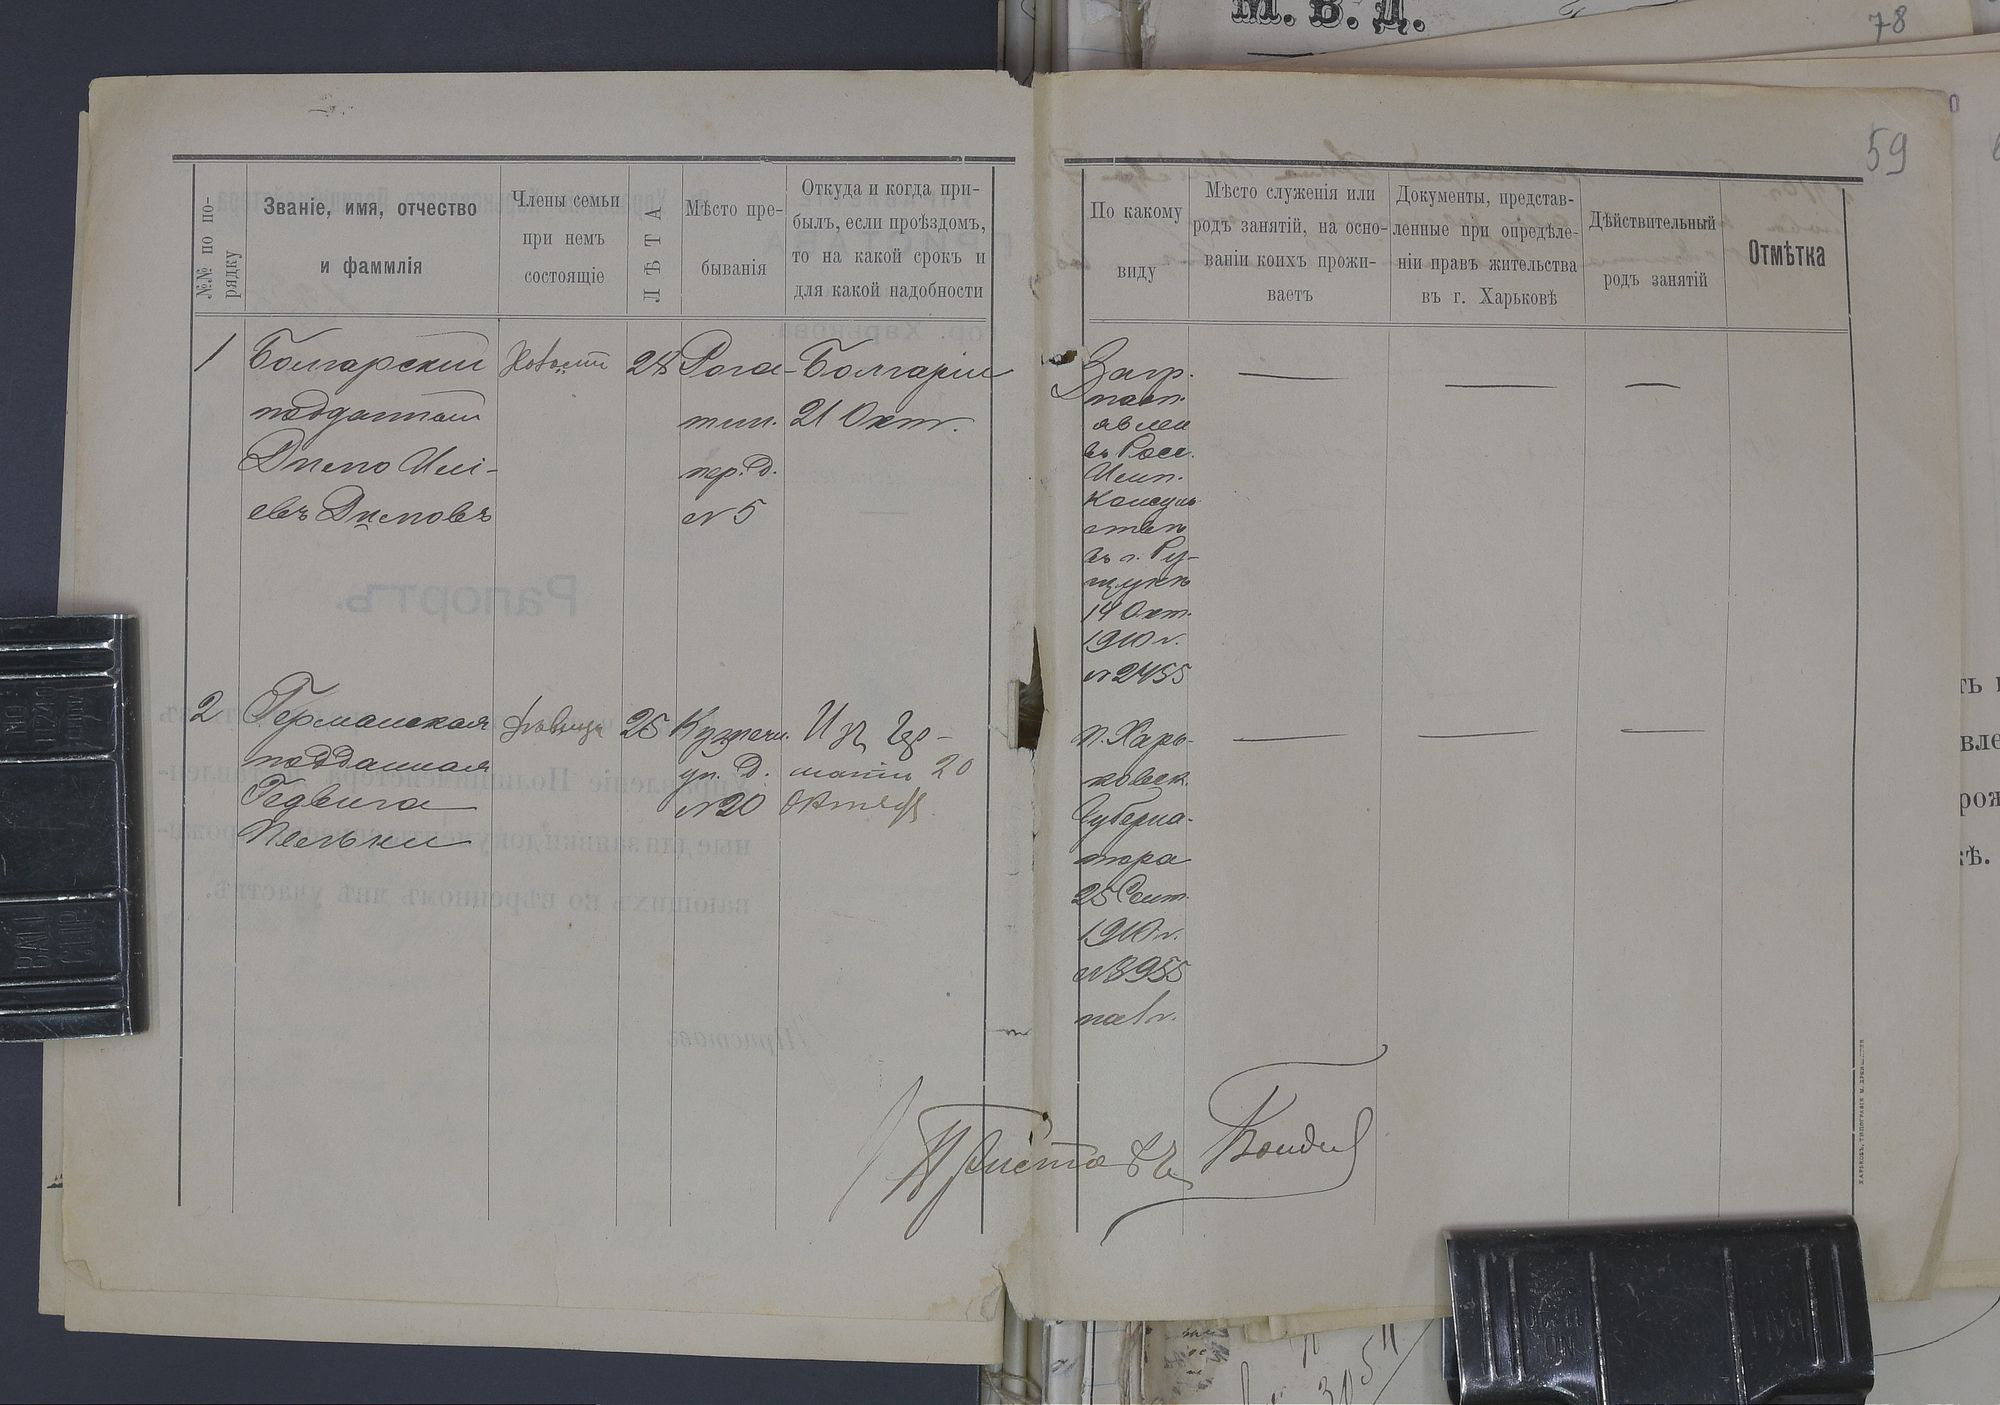 М. В. Д.
78
59
№№ по по-
рядку
Званіе, имя, отчество
и фаммлія
Члены семьи
при немъ
состоящіе
ЛѢТА
Мѣсто пре-
быванія
Откуда и когда при-
былъ, если проѣздомъ,
то на какой срокъ и
для какой надобности
По какому
виду
Мѣсто служенія или
родъ занятій, на осно-
ваніи коихъ прожи-
ваетъ
Документы, представ-
ленные при опредѣле-
ніи правъ жительства
въ г. Харьковѣ
Дѣйствительный
родъ занятій
Отмѣтка
1
Болгарскій
подданный
Димо Илі-
евъ Димовъ
Холостъ
28
Рога-
тин.
пер. д.
№ 5
Болгаріи
21 Окт.
Загр.
пасп.
явлен
въ Росс.
Имп.
Консуль-
ствѣ
въ г. Ру-
щукѣ
14 Окт.
1910 г.
№ 2455
2
Германская
подданная
Гедвига
Пельки
дѣвица
25
Кузнечн.
ул. д.
№ 20
Изъ Гер-
маніи 20
Октября
п. Харь-
ковск.
Губерна-
тора
25 Сент.
1910 г.
№ 8955
на 1 г.
Приставъ